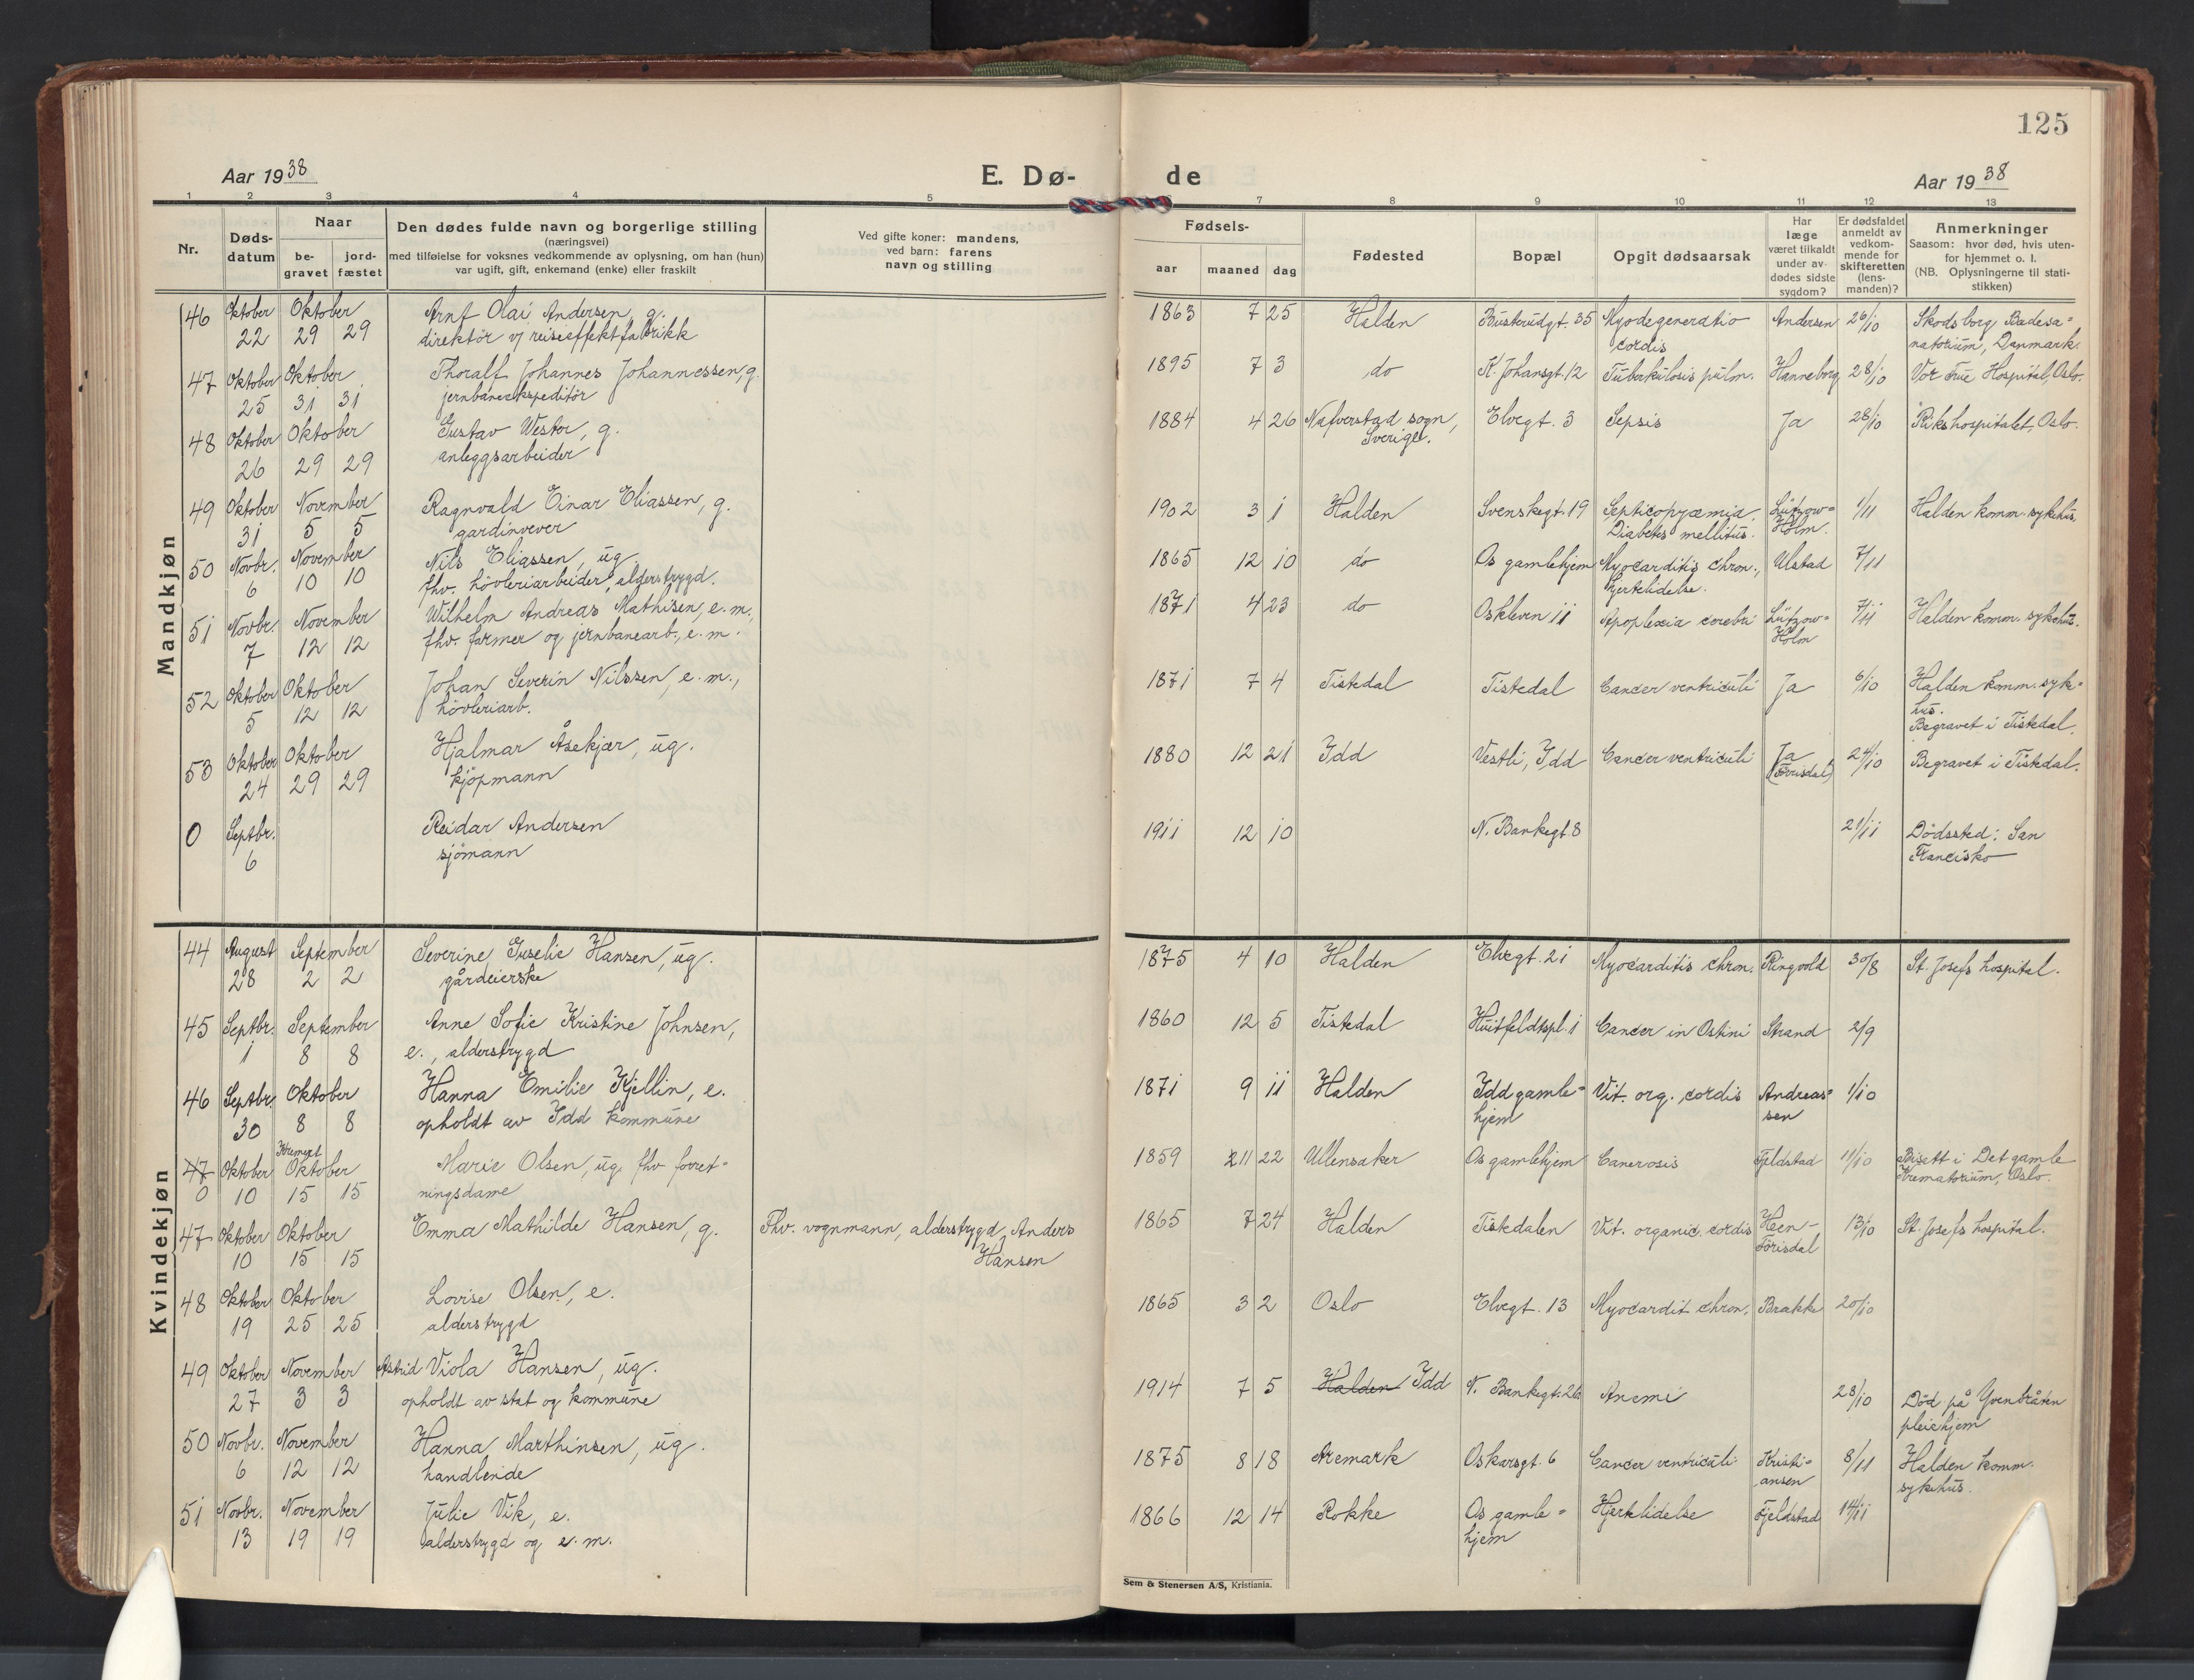 125
Aar 1938
E. Dø-
de
Aar 1938
1 2 3 4 5
7 8 9 10 11 12 13
Nr.
Døds-
datum
Naar
be-
gravet
jord-
fæstet
Den dødes fulde navn og borgerlige stilling
(næringsvei)
med tilføielse for voksnes vedkommende av oplysning, om han (hun)
var ugift, gift, enkemand (enke) eller fraskilt
Ved gifte koner: mandens,
ved barn: farens
navn og stilling
Fødsels-
aar maaned dag
Fødested
Bopæl
Opgit dødsaarsak
Har
læge
været tilkaldt
under av-
dødes sidste
sygdom?
Er dødsfaldet
anmeldt av
vedkom-
mende for
skifteretten
(lens-
manden)?
Anmerkninger
Saasom: hvor død, hvis uten-
for hjemmet o. l.
(NB. Oplysningerne til stati-
stikken)
Mandkjøn
46 Oktober Oktober Arnt Olai Andersen, g. 1863 7 25 Halden Busterudgt. 35 Myodegeneratio Andersen 26/10 Skodsborg Badesa=
22 29 29 direktör v/ reiseeffektfabrikk cordis natorium, Danmark.
47 Oktober Oktober Thoralf Johannes Johannessen, g. 1895 7 3 do K. Johansgt. 12 Tuberkulosis pulm. Hanneborg 28/10 Vor Frue Hospital, Oslo.
25 31 31 jernbaneekspeditör
48 Oktober Oktober Gustav Westor, g. 1884 4 26 Nafverstad sogn, Elvegt. 3 Sepsis Ja 28/10 Rikshospitalet, Oslo.
26 29 29 anleggsarbeider Sverige.
49 Oktober November Ragnvald Einar Eliassen, g. 1902 3 1 Halden Svenskegt. 19 Septicopyæmia, Lützow= 1/11 Halden komm. sykehus
31 5 5 gardinvever Diabetes mellitus. Holm.
50 Novbr. November Nils Eliassen, ug. 1865 12 10 do Os gamlehjem Myocarditis chron., Ulstad 7/11
6 10 10 fhv. hövleriarbeider, alderstrygd. hjertelidelse.
51 Novbr. November Wilhelm Andreas Mathisen, e. m., 1871 4 23 do Oskleven 11 Apoplexia cerebri Lützow= 7/11 Halden komm. sykehus.
7 12 12 fhv. farmer og jernbanearb., e. m. Holm
52 Oktober Oktober Johan Severin Nilssen, e. m., 1871 7 4 Tistedal Tistedal Cancer ventriculi Ja 6/10 Halden komm. syk=
5 12 12 hövleriarb. hus.
Begravet i Tistedal.
53 Oktober Oktober Hjalmar Åsekjær, ug. 1880 12 21 Idd Vestli, Idd Cancer ventriculi Ja 24/10 Begravet i Tistedal.
24 29 29 kjöpmann
0 Septbr. Reidar Andersen 1911 12 10 N. Bankegt. 8 21/11 Dödssted: San
6 sjömann Francisko
Kvindekjøn
44 August September Severine Guselie Hansen, ug. 1875 4 10 Halden Elvegt. 21 Myocarditis chron. Ringvold 30/8 St. Josefs hospital.
28 2 2 gårdeierske
45 Septbr. September Anne Sofie Kristine Johnsen, 1860 12 5 Tistedal Huitfeldtspl. 1 Cancer in Ostini Strand 2/9
1 8 8 e., alderstrygd
46 Septbr. Oktober Hanna Emilie Kjellin, e. 1871 9 11 Halden Idd gamle= Vit. org. cordis Andreas= 1/10
30 8 8 opholdt av Idd kommune hjem sen
Kremert
47 Oktober Oktober Marie Olsen, ug. fhv. forret= 1859 11 22 Ullensaker Os gamlehjem Cancrosis Fjeldstad 11/10 Bisatt i Det gamle
0 10 15 15 ningsdame Krematorium, Oslo.
47 Oktober Oktober Emma Mathilde Hansen, g. Fhv. vognmann, alderstrygd, Anders 1865 7 24 Halden Tistedalen Vit. organic. cordis Heen- 13/10 St. Josefs hospital.
10 15 15 Hansen Forisdal
48 Oktober Oktober Lovise Olsen, e. 1865 3 2 Oslo Elvegt. 13 Myocardit chron. Brakke 20/10
19 25 25 alderstrygd
49 Oktober November Astrid Viola Hansen, ug. 1914 7 5 Halden Idd N. Bankegt. 26 Anemi 28/10 Död på
27 3 3 opholdt av stat og kommune pleiehjem
50 Novbr. November Hanna Marthinsen, ug. 1875 8 18 Aremark Oskarsgt. 6 Cancer ventriculi Kristi= 8/11 Halden komm.
6 12 12 handlende ansen sykehus.
51 Novbr. November Julie Vik, e. 1866 12 14 Rokke Os gamle= Hjertelidelse Fjeldstad 14/11
13 19 19 alderstrygd og e. m. hjem
Sem & Stenersen A/S, Kristiania.